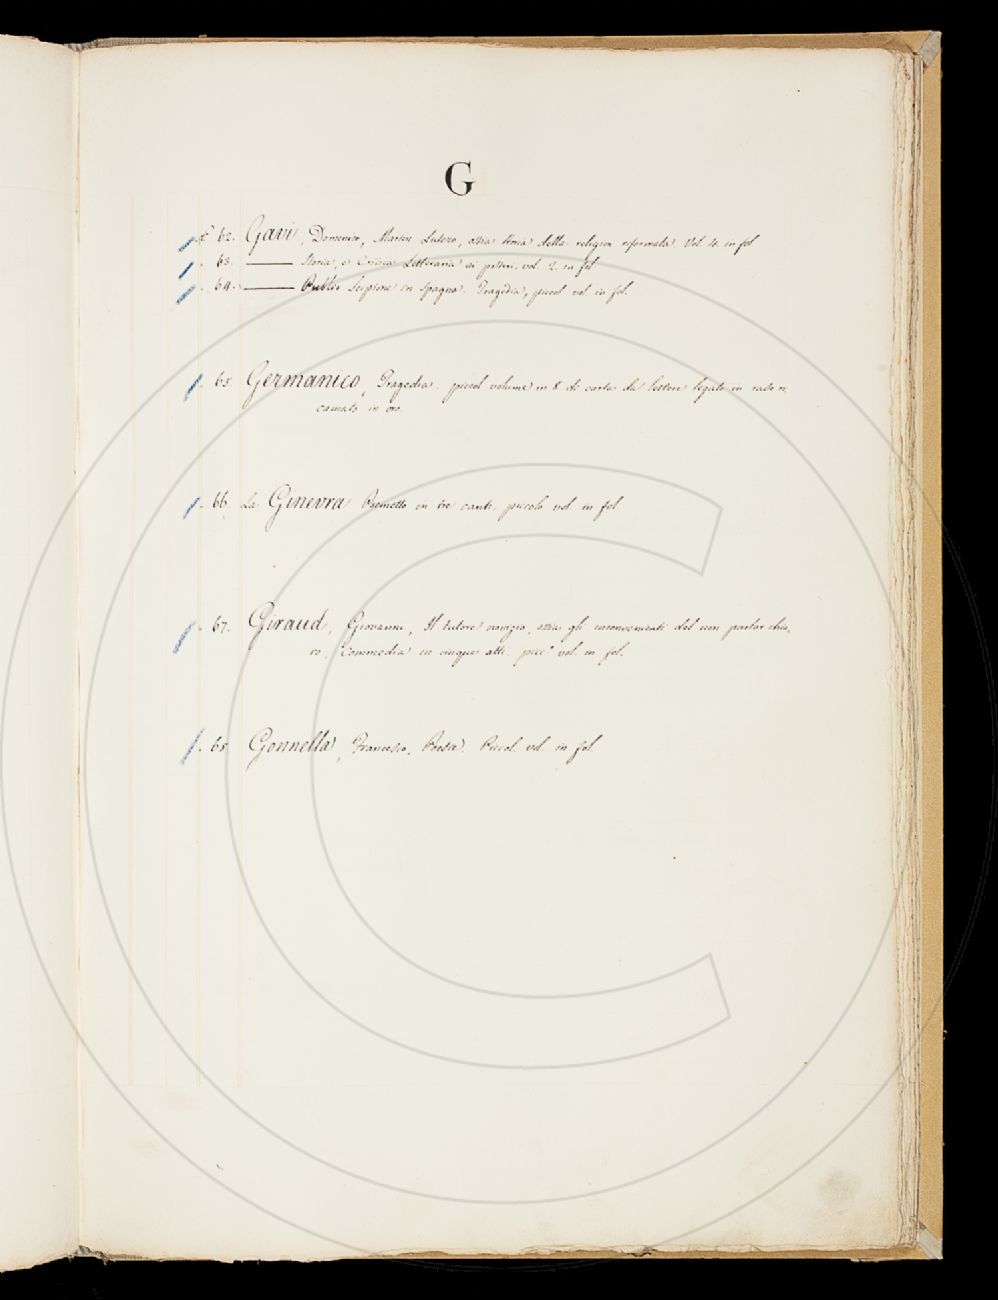 G
62. Gavi, Domenico, Martin Lutero, ossia Storia della religion riformata Vol. 4. in fol
63. ——— Storia, e Critica Letteraria ai posteri. vol. 2. in fol.
64. ——— Publio Scipione in Spagna. Tragedia, piccol vol. in fol.
65. Germanico, Tragedia. piccol volume in 8. di carta da lettere legato in raso ri
camato in oro.
66. La Ginevra Poemetto in tre canti. piccolo vol. in fol.
67. Giraud, Giovanni, Il tutore novizio, ossia gli inconvenienti del non parlar chia,
ro, Commedia in cinque atti. picc.° vol. in fol.
68. Gonnella, Francesco, Poesie. Piccol vol. in fol.
C